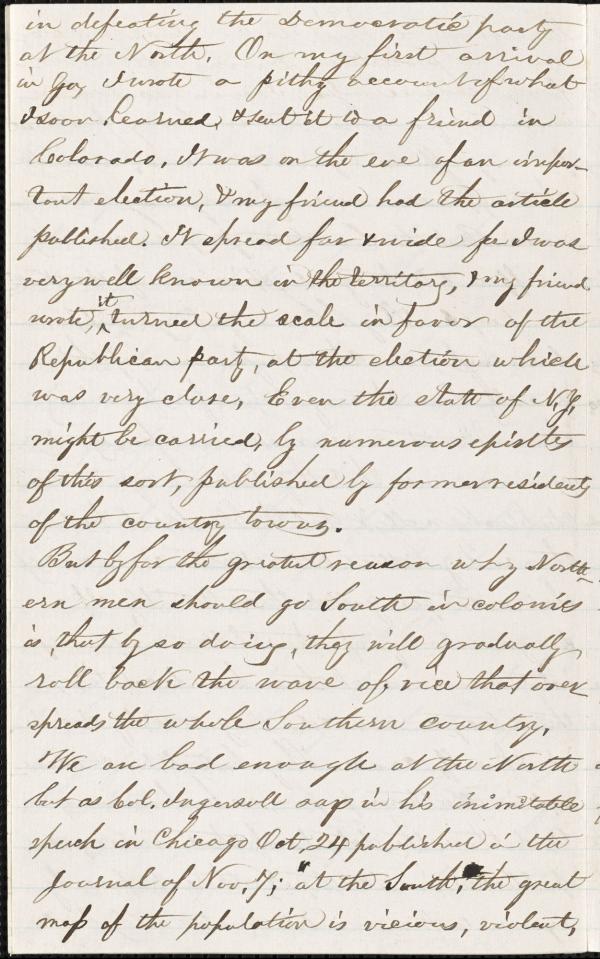 in defeating the Democratic party
at the North. On my first arrival
in Ga, I wrote a pithy account of what
I soon learned, & sent it to a friend in
Colorado, It was on the eve of an impor-
tant election, & my friend had the article
published. It spread far & wide for I was
very well known in the territory, & my friend
wrote, it turned the scale in favor of the
Republican party, at the election which
was very close, Even the State of N.Y,
might be carried, by numerous epistles
of this sort, published by former residents
of the country towns.
But by far the greatest reason why North-
ern men should go South in colonies
is, that by so doing, they will gradually
roll back the wave of vice that over
spreads the whole Southern country.
We are bad enough at the North
but as Col. Ingersoll says in his inimitable
speech in Chicago Oct, 24 published in the
Journal of Nov. 7; "at the South, the great
mass of the population is vicious, violent,